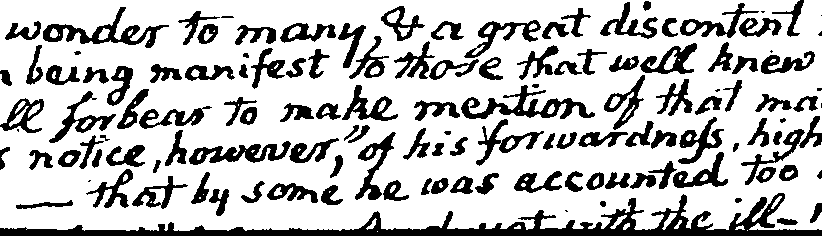 wonder to many, & a great discontent
being manifest to those that well knew
ll forbear to make mention of that ma
s notice, however," of his forwardness, high
— that by some he was accounted too
with the ill-